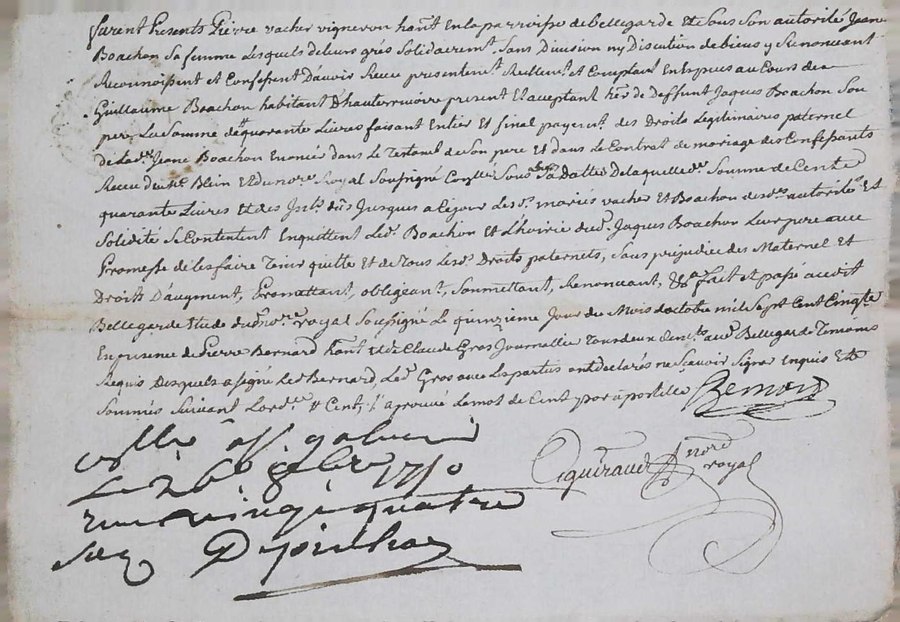 furent Presents Pierre vacher vigneron hant. En la parroisse de bellegarde Et Sous Son autorité Jeane
Boachon Sa femme Lesquels de leurs grés Solidairemt. Sans Division ny Discution de biens y Renonceant
Reconnoissent et Confessent D'avoir Receu presentemt. Reellemt. et Comptant En Especes au Cours de
Guillaume Boachon habitant D'hauterivoire present Et aceptant her. de Deffunt Jaques Boachon Son
pere La Somme de quarante Livres faisant Entier Et final payemt. des Droits Legitimaires paternel
de Lad. Jeane Boachon Enoncés dans Le Testamt. de Son pere Et dans Le Contrat de mariage des Confessants
Receu Blein Et du nore. Royal Sousigné Sous Sa Datte De laquelle Somme de Cent
quarante Livres Et des Jusques a Ce jour Les d. mariés vacher Et Boachon autorité Et
Solidité Se Contentent Enquittent Led. Boachon Et L'hoirie dud. Jaques Boachon Leur pere avec
Promesse de Les faire Tenir quitte Et de Tous Lesd. Droits paternels, Sans prejudice des Maternel Et
Droits D'augment, Promettant, obligeant, Soumettant, Renonceant, &a fait et passé audit
Bellegarde Etude dud. nore. royal Sousigné Le quinzieme Jour du Mois d'octobre mil Sept Cent Cinqte
En presence de Pierre Bernard hant. et de Claude Gros Journallier Tous deux aud. Bellegarde Temoins
Requis Desquels a Signé Led. Bernard, Led. Gros avec Les parties ont declarés ne Scavoir Signer Enquis Et
Sommés Suivant Lord. Cent, J'aprouvé Le mot de Cent par apostille Bernard
nore
royal
Le 26 8bre 1750
vingt quatre